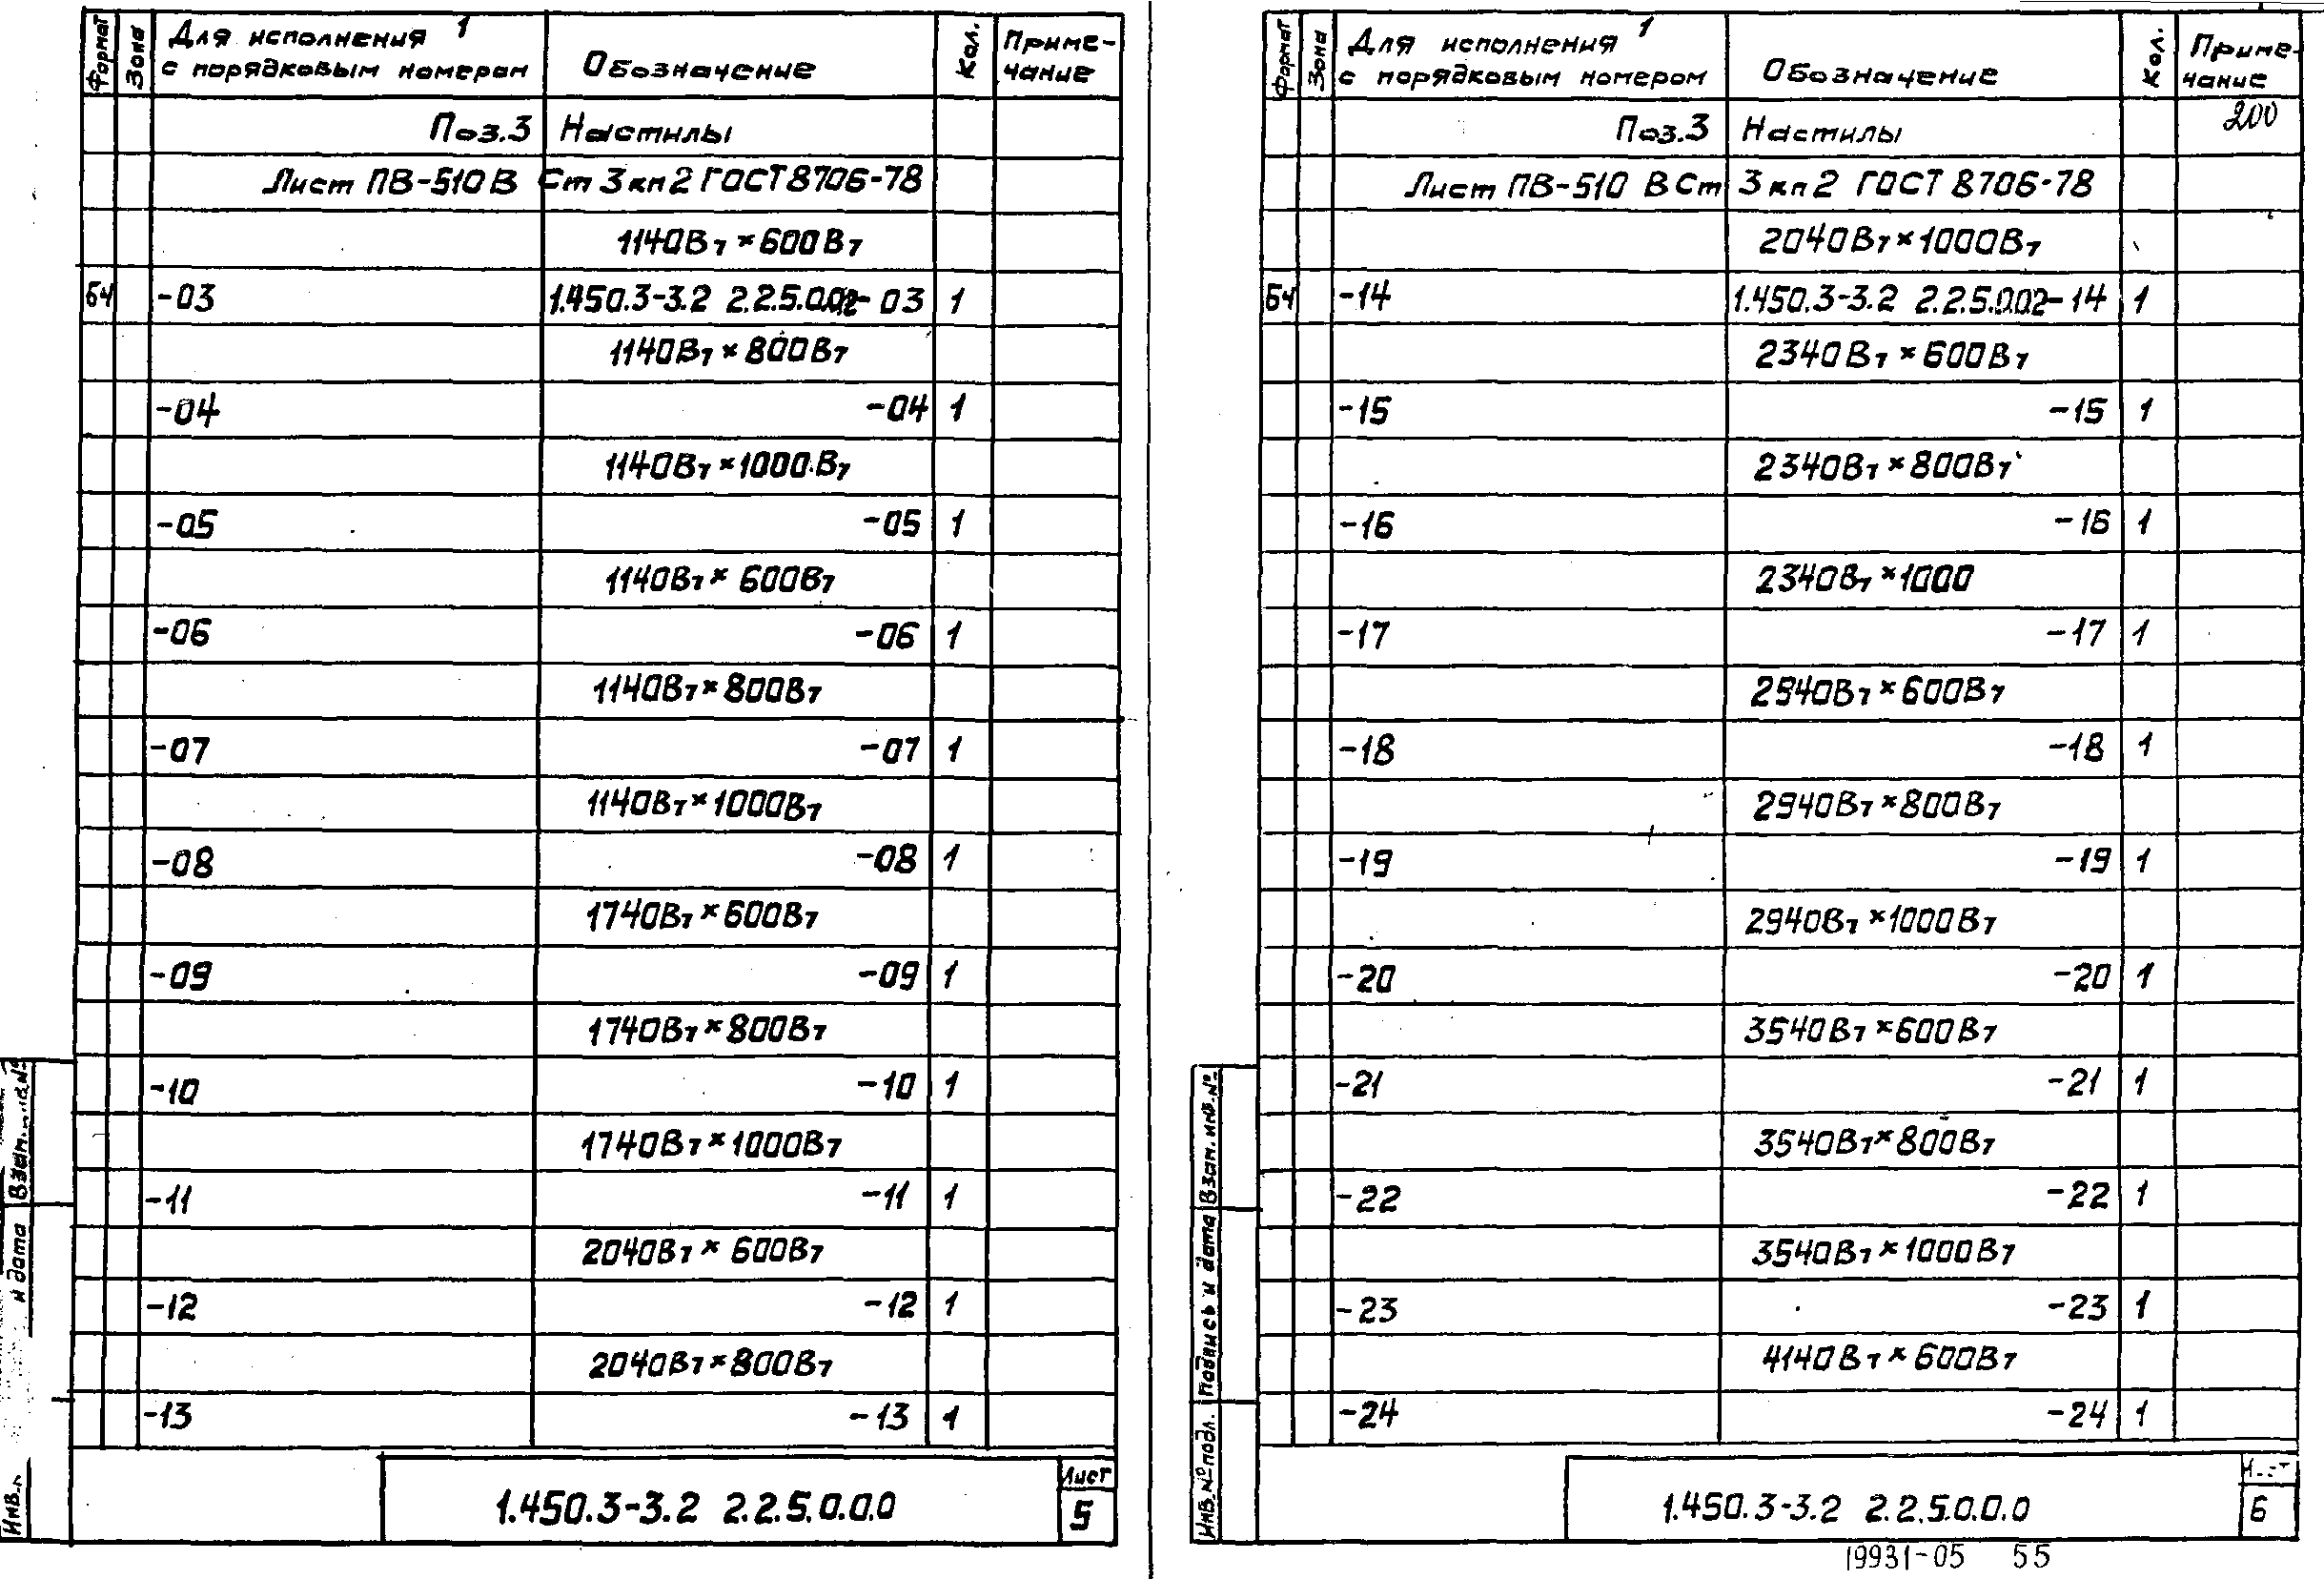 Формат
Зона
Для исполнения 1
с порядковым номером
Обозначение
Кол.
Приме-
чание
Поз.3 Настилы
Лист ПВ-510 В Ст 3 кп 2 ГОСТ 8706-78
1140В7 × 600В7
БЧ -03 1.450.3-3.2 2.2.5.0.02-03 1
1140В7 × 800В7
-04 -04 1
1140В7 × 1000В7
-05 -05 1
1140В7 × 600В7
-06 -06 1
1140В7 × 800В7
-07 -07 1
1140В7 × 1000В7
-08 -08 1
1740В7 × 600В7
-09 -09 1
1740В7 × 800В7
-10 -10 1
1740В7 × 1000В7
-11 -11 1
2040В7 × 600В7
-12 -12 1
2040В7 × 800В7
-13 -13 1
1.450.3-3.2 2.2.5.0.0.0
Лист
5
Взам.
и дата
Инв.
Формат
Зона
Для исполнения 1
с порядковым номером
Обозначение
Кол.
Приме-
чание
200
Поз.3 Настилы
Лист ПВ-510 В Ст 3 кп 2 ГОСТ 8706-78
2040В7 × 1000В7
БЧ -14 1.450.3-3.2 2.2.5.0.02-14 1
2340В7 × 600В7
-15 -15 1
2340В7 × 800В7
-16 -16 1
2340В7 × 1000
-17 -17 1
2940В7 × 600В7
-18 -18 1
2940В7 × 800В7
-19 -19 1
2940В7 × 1000В7
-20 -20 1
3540В7 × 600В7
-21 -21 1
3540В7 × 800В7
-22 -22 1
3540В7 × 1000В7
-23 -23 1
4140В7 × 600В7
-24 -24 1
1.450.3-3.2 2.2.5.0.0.0
6
Взам. инв. №
Подпись и дата
Инв. № подл.
19931-05 55